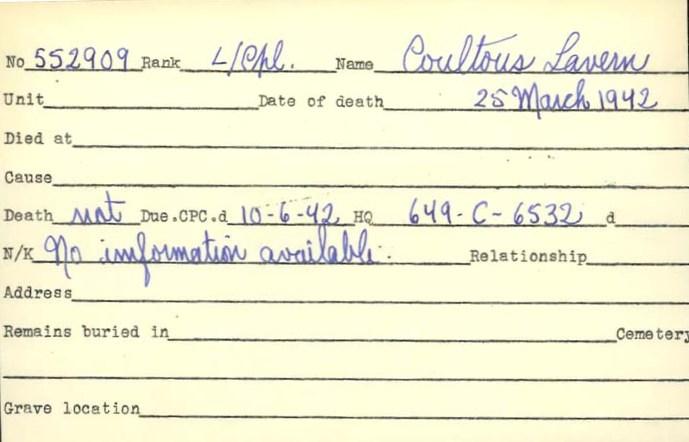 No 552909 Rank L/Cpl. Name Coultous Lavern
Unit Date of death 25 March 1942
Died at
Cause
Death not Due.CPC.d 10-6-42 HQ 649-C-6532 d
N/K No information available. Relationship
Address
Remains buried in Cemetery
Grave location